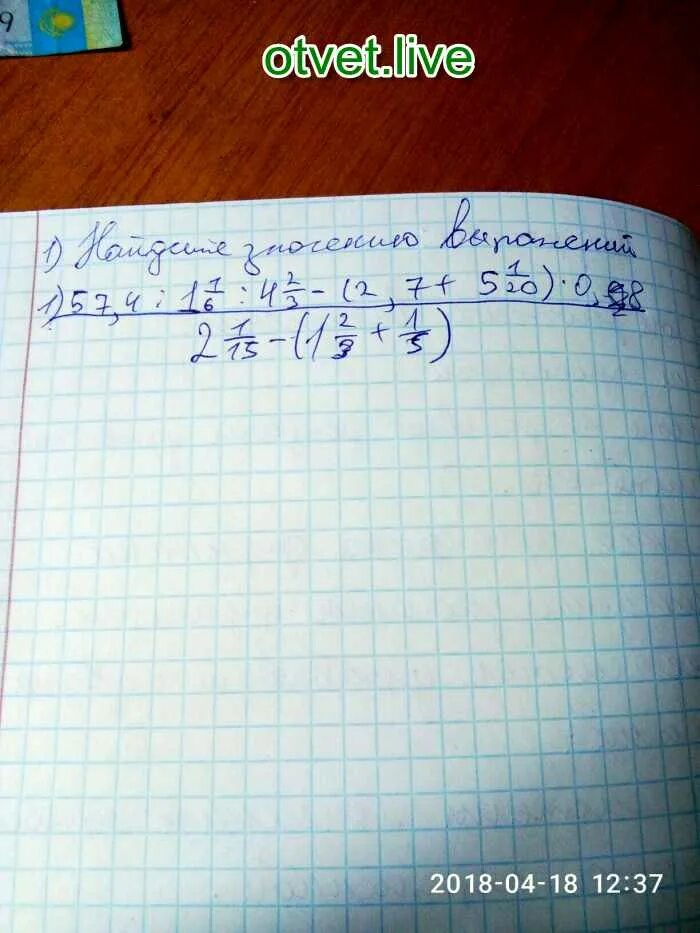 9
otvet.live
1) Найдите значению выражений
1) 57,4 : 1 1/6 : 4 2/3 - (2,7 + 5 1/20) · 0,8
2 1/15 - (1 2/3 + 1/5)
2018-04-18 12:37